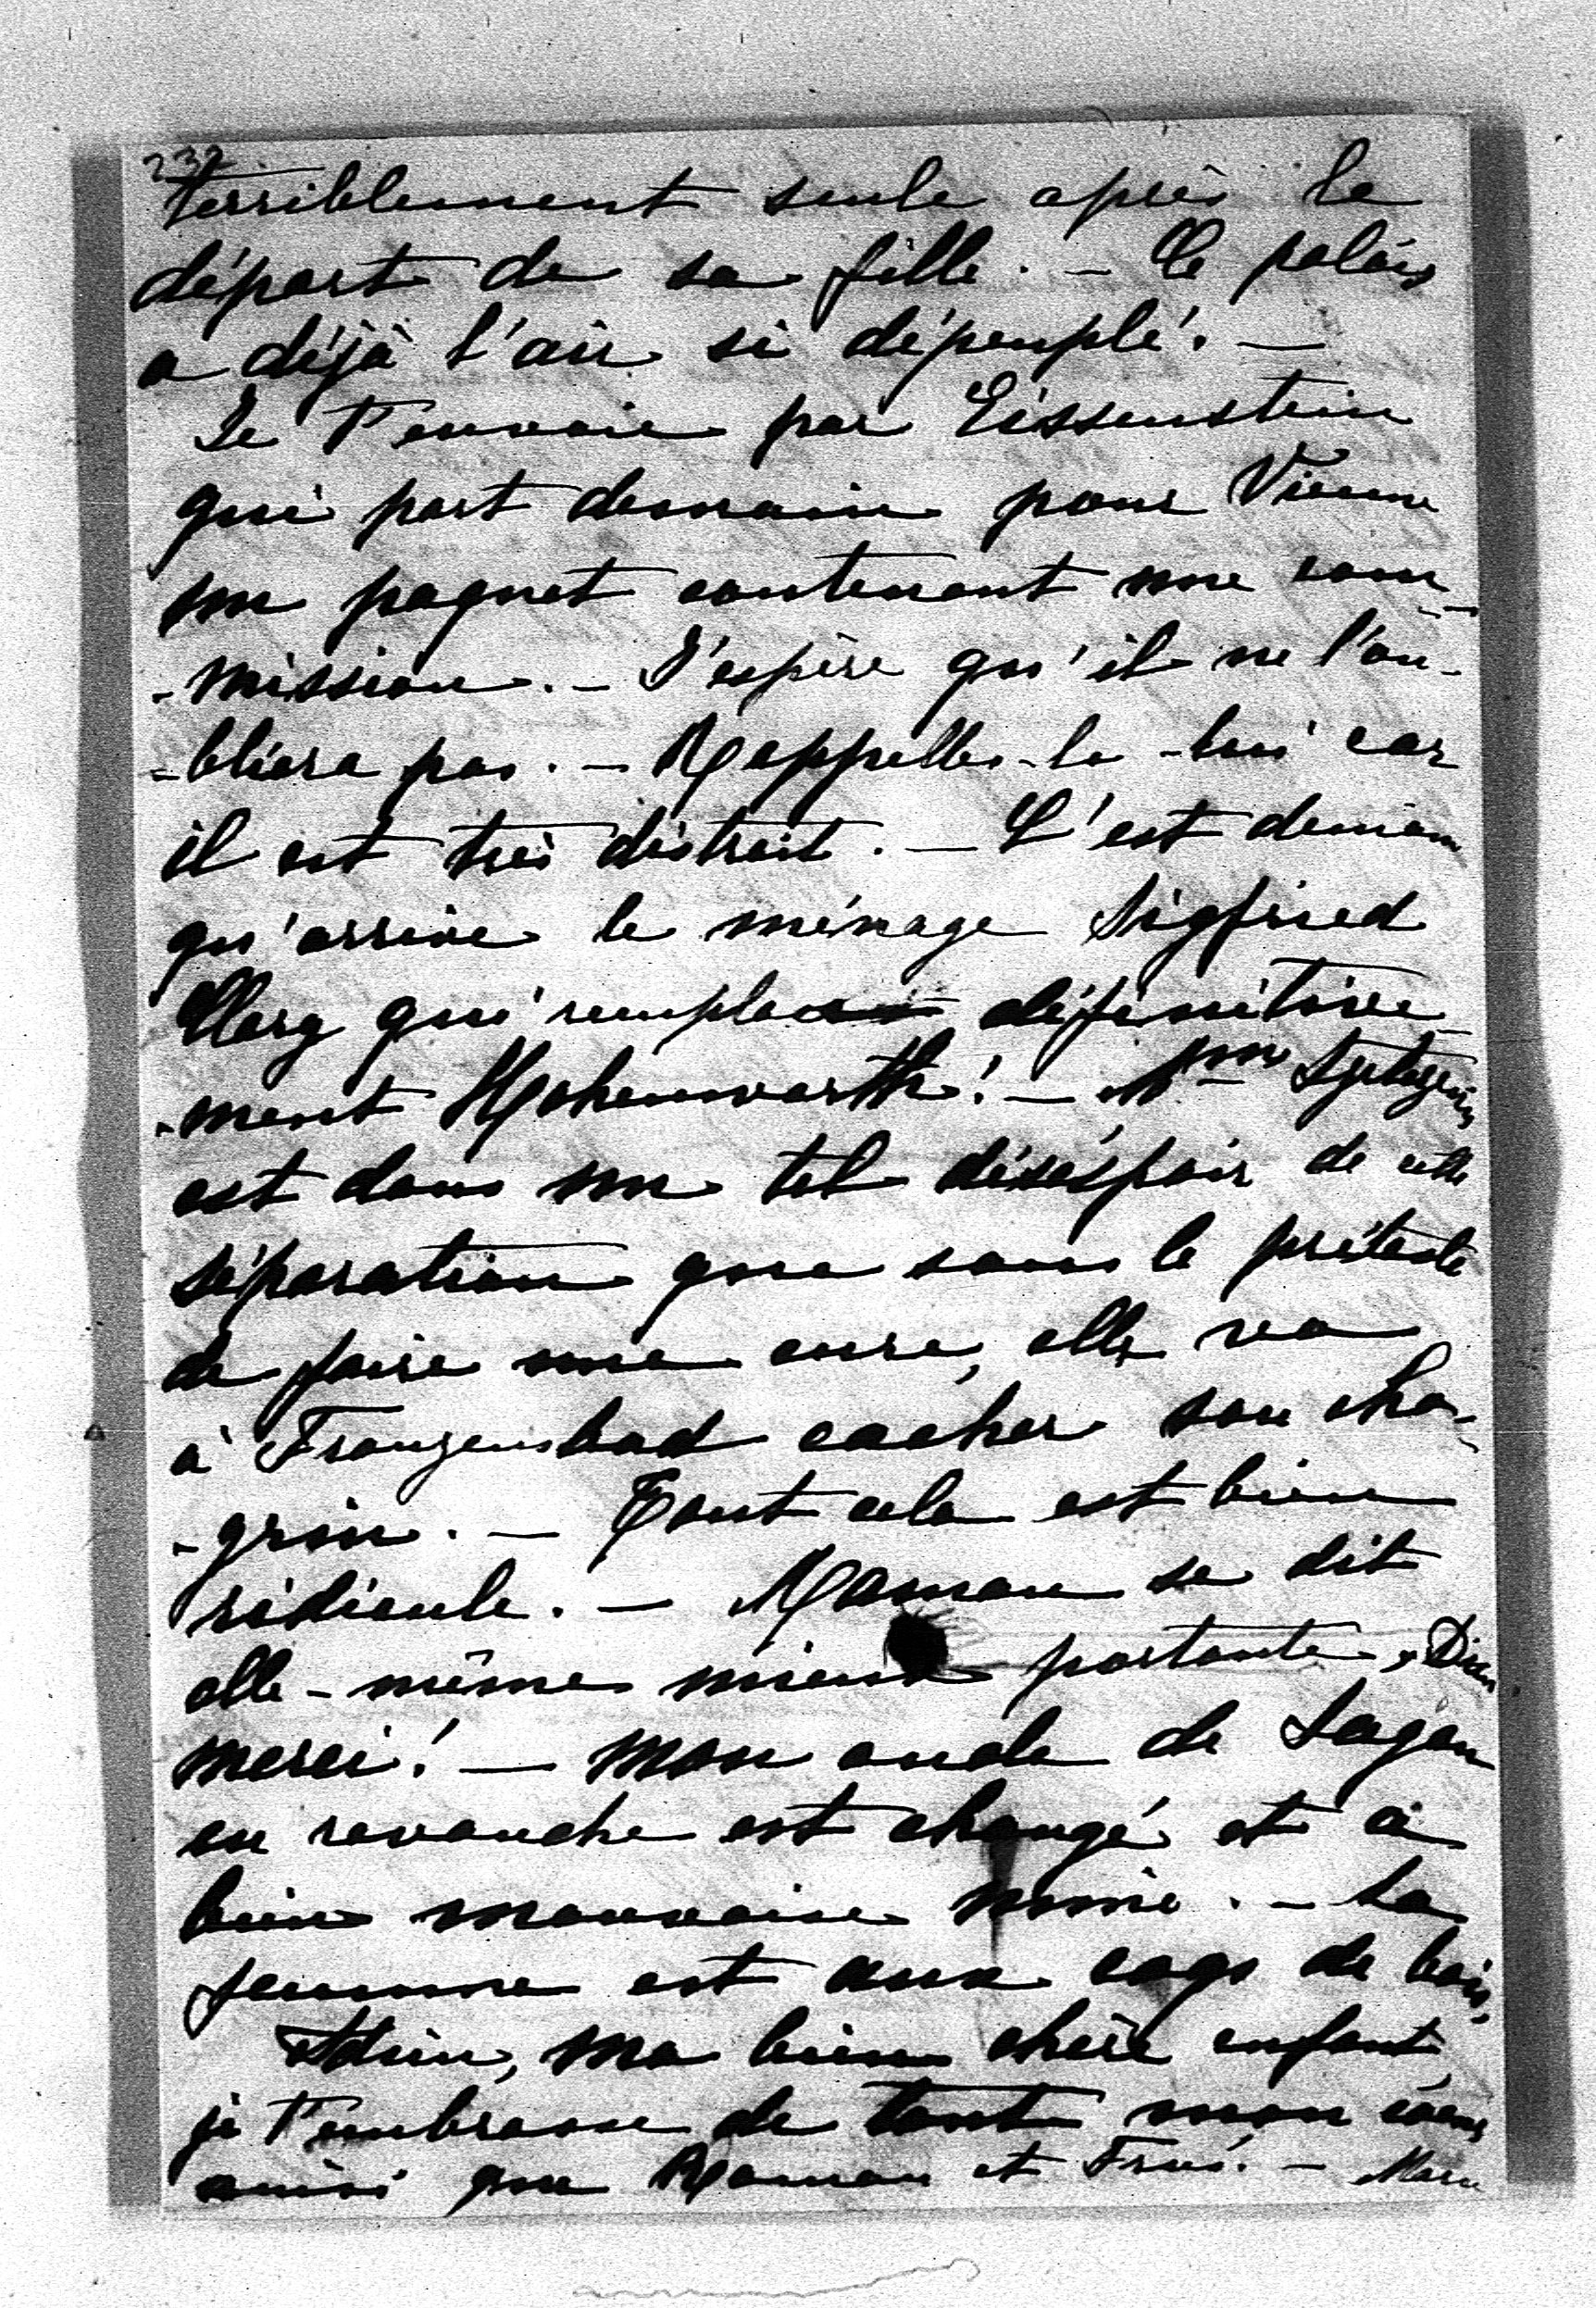 232
terriblement seule après le
départ de sa fille. – Le palais
a déjà l'air si dépeuplé. –
Je t'envoie par Eissenstein
qui part demain pour Vienne
un paquet contenant une com-
-mission. – J'espère qu'il ne l'ou-
-bliera pas. – Rappelles-le-lui car
il est très distrait. – C'est demain
qu'arrive le ménage Sigfried
Clary qui remplace définitive-
-ment Hohenwarth! – Mme
est dans un tel désespoir de cette
séparation que sous le prétexte
de faire une cure, elle va
à Franzensbad cacher son cha-
-grin. – Tout cela est bien
ridicule. – Maman se dit
elle-même mieux portante, Dieu
merci! – Mon oncle de Sagan
en revanche est changé et a
bien mauvaise mine. – Sa
femme est aux eaux de bois,
Adieu, ma bien chère enfant,
je t'embrasse de tout mon coeur
ainsi que Maman et – Marie